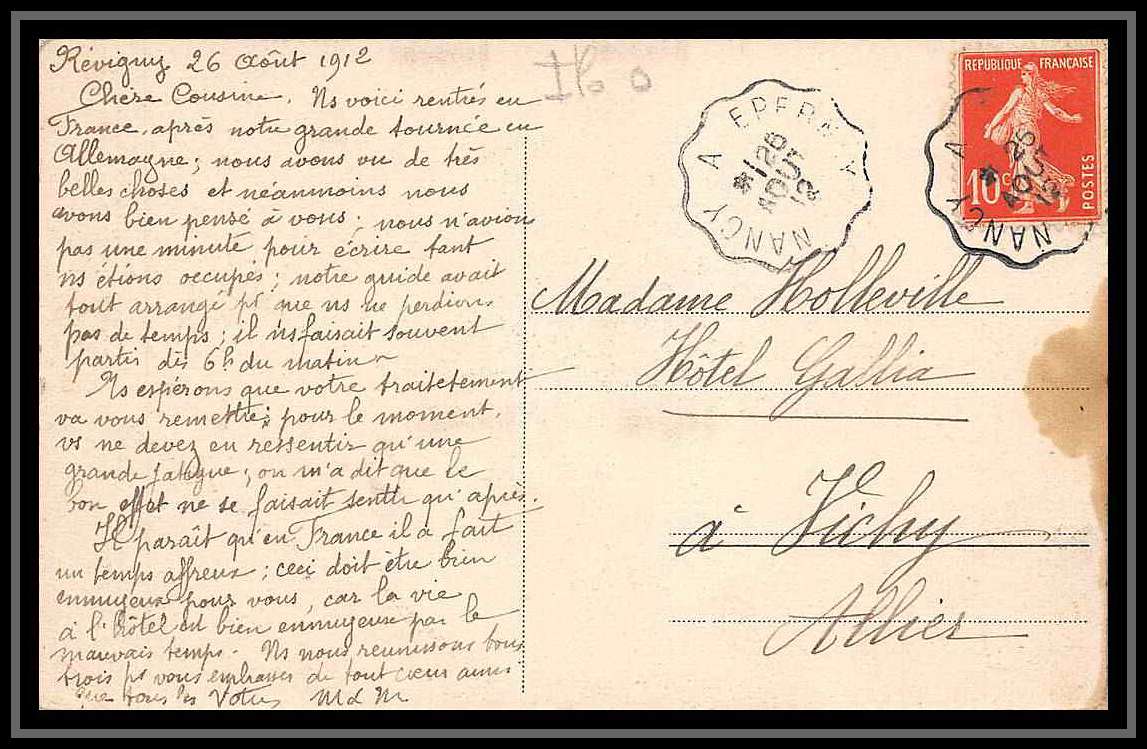 Révigny 26 Août 1912
Chère Cousine. Ns voici rentrés en
France, après notre grande tournée en
Allemagne; nous avons vu de très
belles choses et néanmoins nous
avons bien pensé à vous; nous n'avion
pas une minute pour écrire tant
ns étions occupés; notre guide avait
tout arrangé pr que ns ne perdions
pas de temps; il ns faisait souvent
partir dès 6h du matin
Ns espérons que votre traitetement
va vous remettre; pour le moment,
vs ne devez en ressentir qu'une
grande fatigue; on m'a dit que le
bon effet ne se faisait sentir qu'après.
Il paraît qu'en France il a fait
un temps affreux; ceci doit être bien
ennuyeux pour vous, car la vie
à l'hôtel est bien ennuyeuse par le
mauvais temps. Ns nous reunissons tous
trois pr vous embrasser de tout cœur ainsi
que tous les Votres M
REPUBLIQUE FRANÇAISE
10c
POSTES
NANCY A EPERNAY
* 26
AOUT
12
NANCY A
* 26
AOUT
12
Madame Holleville
Hôtel Gallia
à Vichy
Allier